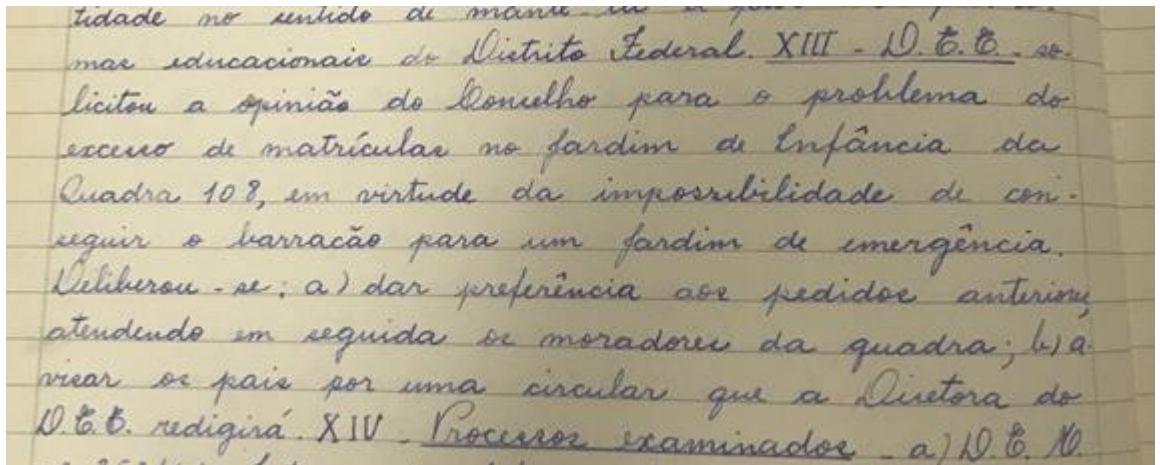 tidade no sentido de mante-la a
mas educacionais do Distrito Federal. XIII - D.E.E. so-
licitou a opinião do Conselho para o problema do
excesso de matrículas no Jardim de Infância da
Quadra 108, em virtude da impossibilidade de con-
seguir o barracão para um Jardim de emergência.
Deliberou-se: a) dar preferência aos pedidos anteriores,
atendendo em seguida os moradores da quadra; b) a-
visar os pais por uma circular que a Diretora do
D.E.E. redigirá. XIV - Processos examinados - a) D.E.M.